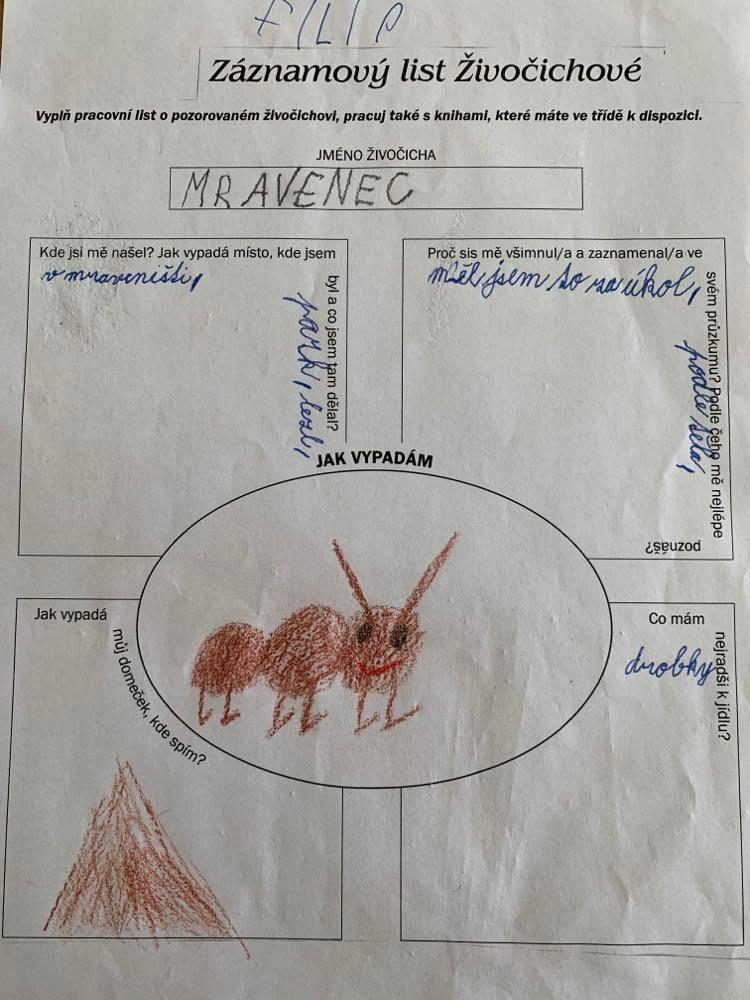 FILIP
Záznamový list Živočichové
Vyplň pracovní list o pozorovaném živočichovi, pracuj také s knihami, které máte ve třídě k dispozici.
JMÉNO ŽIVOČICHA
MRAVENEC
Kde jsi mě našel? Jak vypadá místo, kde jsem
byl a co jsem tam dělal?
v mraveništi,
park, lezl,
Proč sis mě všimnul/a a zaznamenal/a ve
svém průzkumu? Podle čeho mě nejlépe
poznáš?
měl jsem to za úkol,
podle těla,
JAK VYPADÁM
Jak vypadá
můj domeček, kde spím?
Co mám
nejradši k jídlu?
drobky